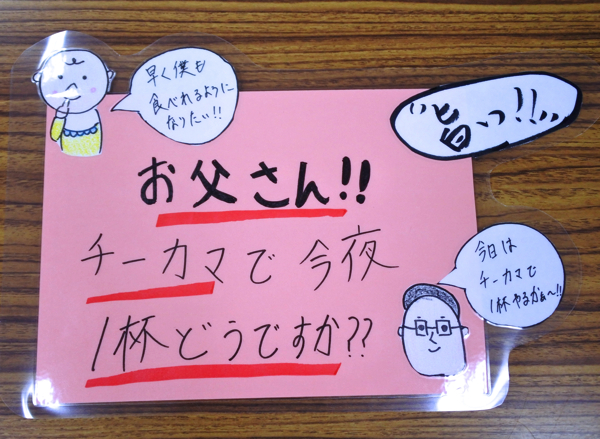 早く僕も
食べれるように
なりたい!!
"旨っ!!"
お父さん!!
チーカマで今夜
1杯どうですか??
今日は
チーカマで
1杯やるかぁ〜!!